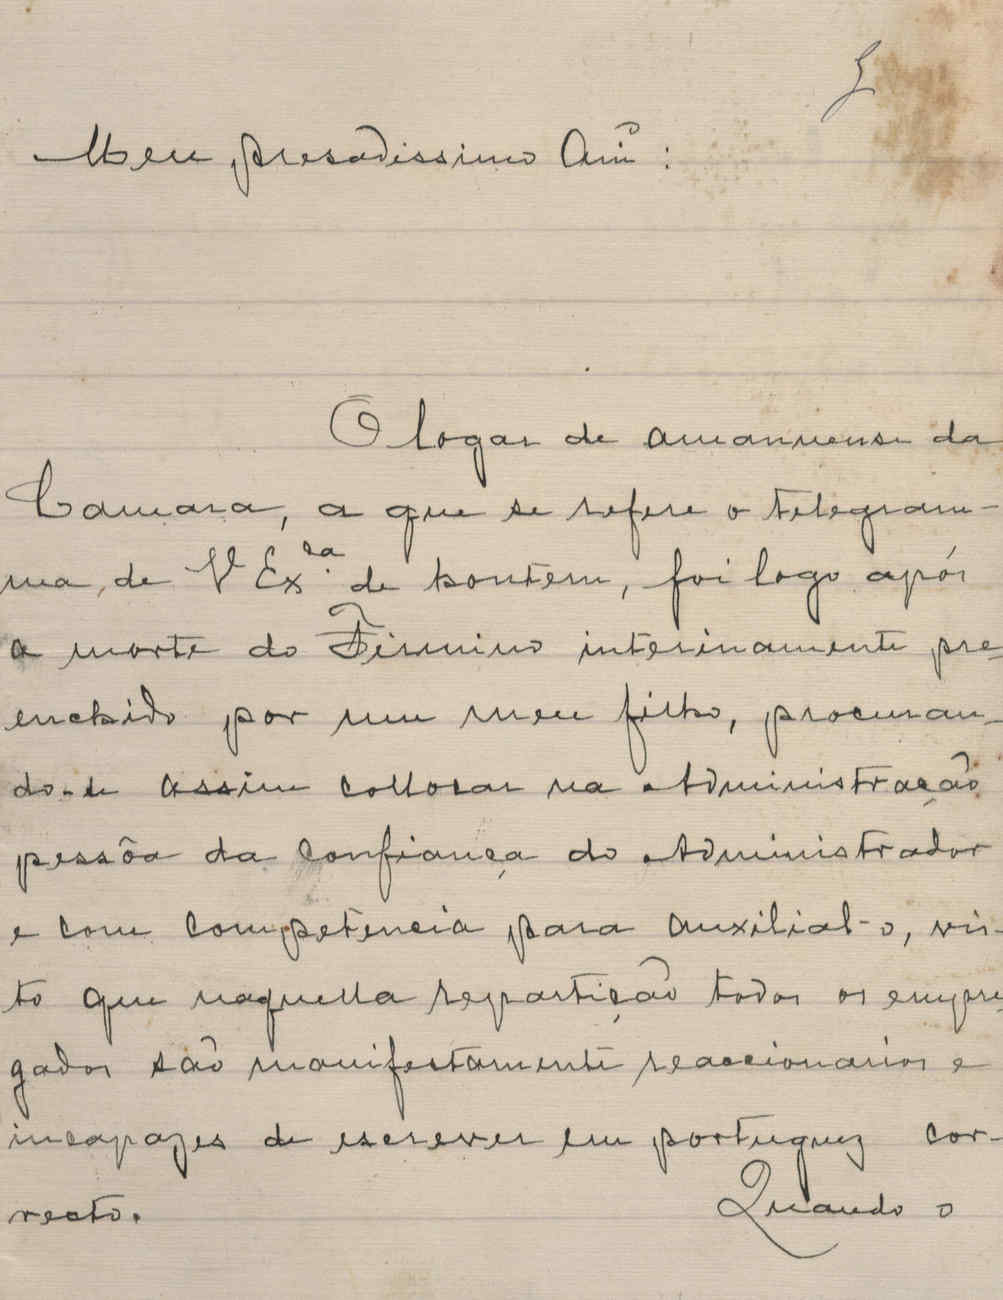 Meu presadissimo Amº:
O logar de amanuense da
Camara, a que se refere o telegram-
ma de V Ex.ra de hontem, foi logo após
a morte do Firmino interinamente pre-
enchido por um meu filho, procuran-
do-se assim collocar na Administração
pessôa da confiança do Administrador
e com competencia para auxilial-o, vis-
to que naquella repartição todos os empre-
gados são manifestamente reaccionarios e
incapazes de escrever em portuguez cor-
recto. Quando o